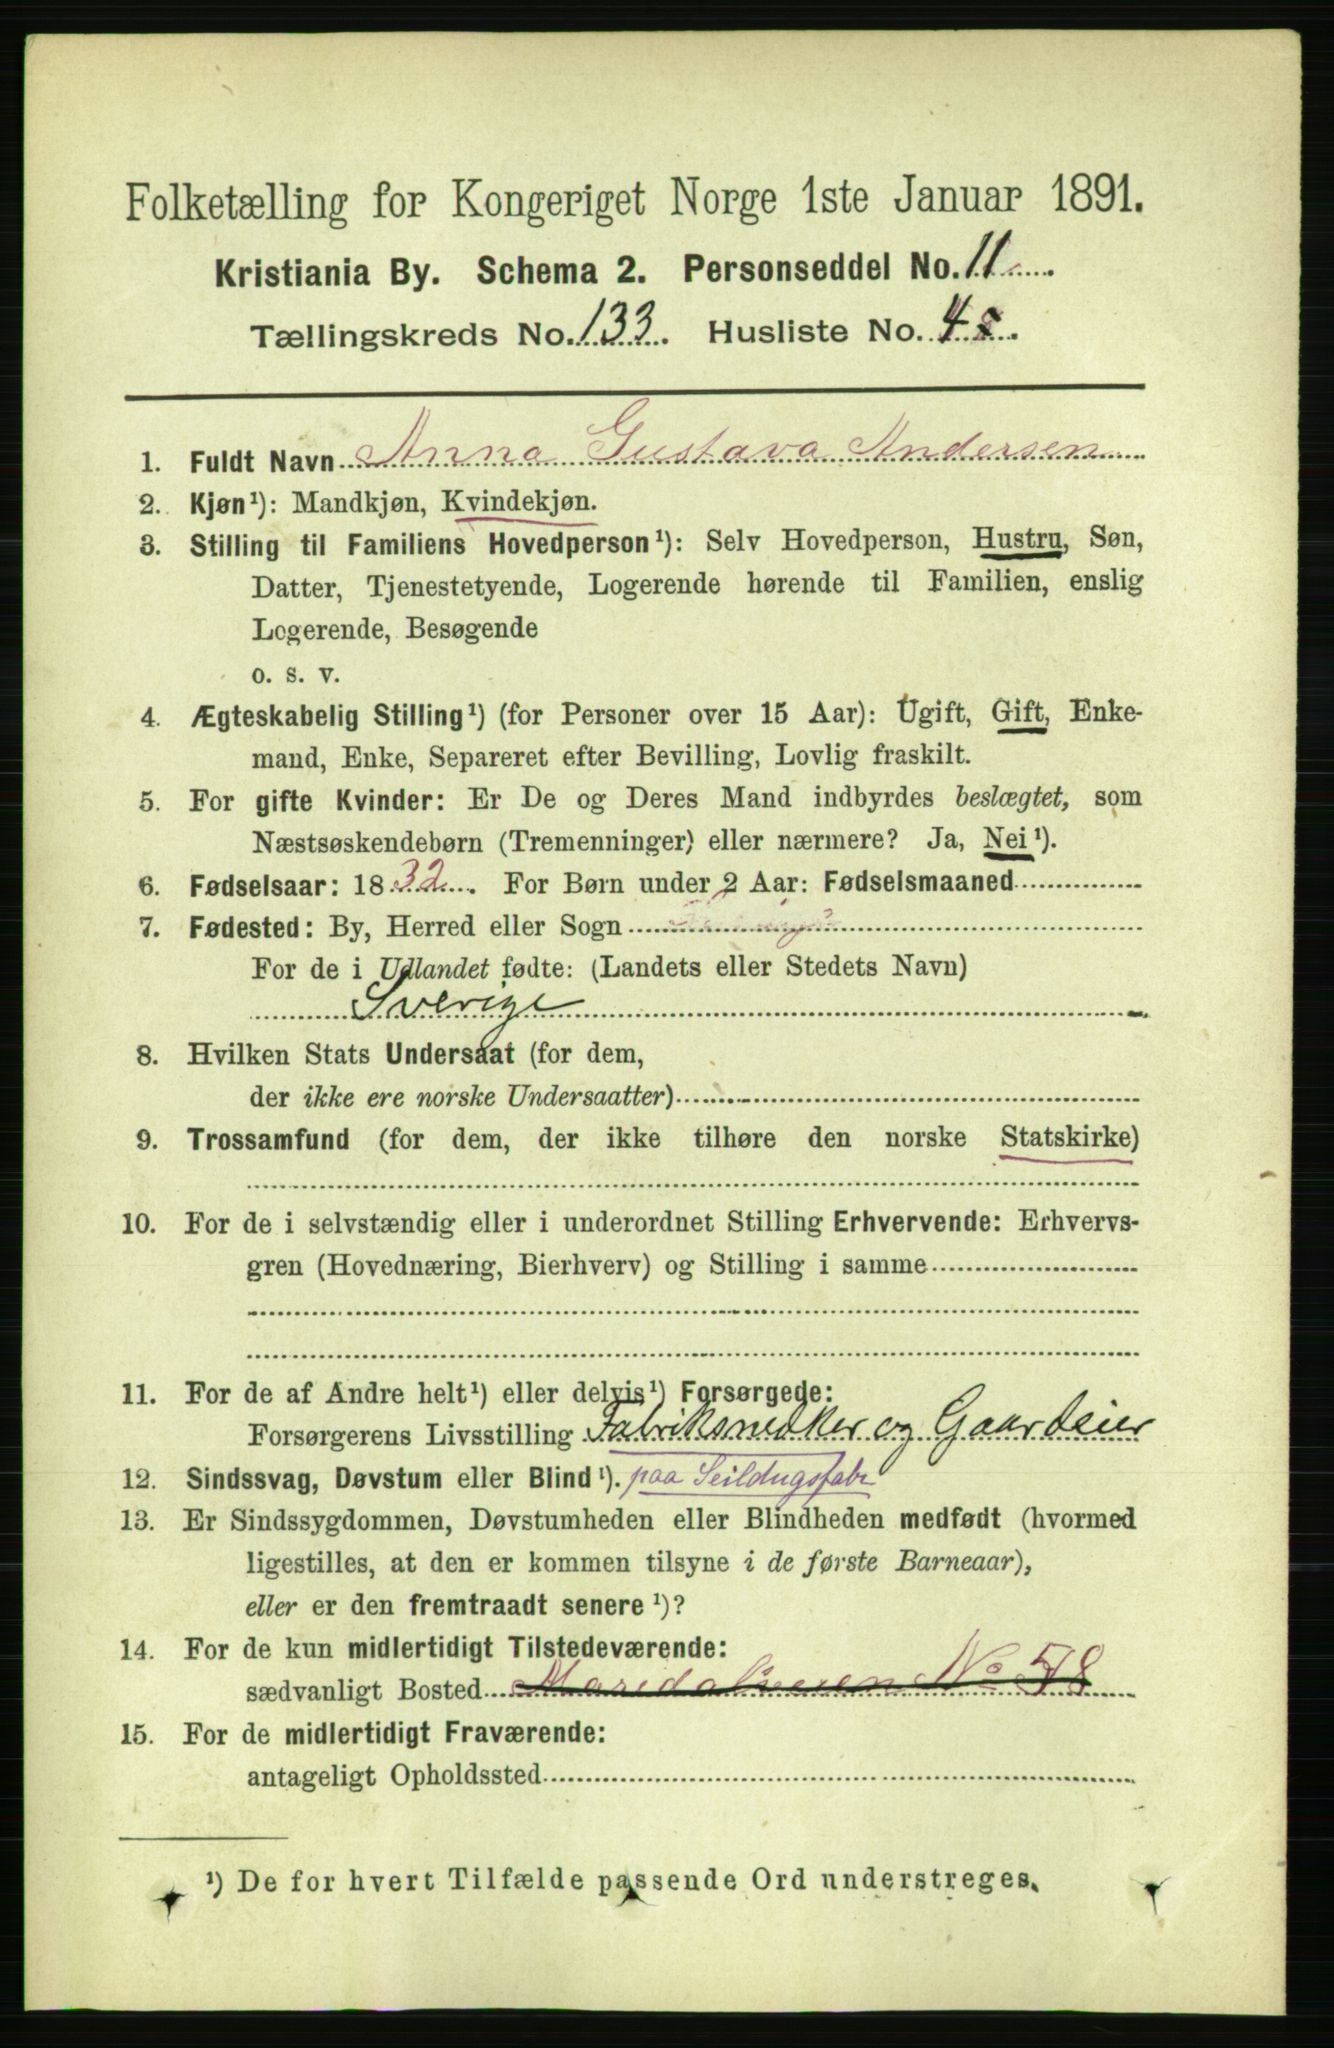 Folketælling for Kongeriget Norge 1ste Januar 1891.
Kristiania By. Schema 2. Personseddel No. 11
Tællingskreds No. 133. Husliste No. 4
1. Fuldt Navn Anna Gustava Andersen
2. Kjøn¹): Mandkjøn, Kvindekjøn.
3. Stilling til Familiens Hovedperson¹): Selv Hovedperson, Hustru, Søn,
Datter, Tjenestetyende, Logerende hørende til Familien, enslig
Logerende, Besøgende
o. s. v.
4. Ægteskabelig Stilling¹) (for Personer over 15 Aar): Ugift, Gift, Enke-
mand, Enke, Separeret efter Bevilling, Lovlig fraskilt.
5. For gifte Kvinder: Er De og Deres Mand indbyrdes beslægtet, som
Næstsøskendebørn (Tremenninger) eller nærmere? Ja, Nei¹).
6. Fødselsaar: 1832. For Børn under 2 Aar: Fødselsmaaned
7. Fødested: By, Herred eller Sogn
For de i Udlandet fødte: (Landets eller Stedets Navn)
Sverige
8. Hvilken Stats Undersaat (for dem,
der ikke ere norske Undersaatter)
9. Trossamfund (for dem, der ikke tilhøre den norske Statskirke)
10. For de i selvstændig eller i underordnet Stilling Erhvervende: Erhvervs-
gren (Hovednæring, Bierhverv) og Stilling i samme
11. For de af Andre helt¹) eller delvis¹) Forsørgede:
Forsørgerens Livsstilling Fabriksnedker og Gaardeier
12. Sindssvag, Døvstum eller Blind¹). paa Seildugsfabr
13. Er Sindssygdommen, Døvstumheden eller Blindheden medfødt (hvormed
ligestilles, at den er kommen tilsyne i de første Barneaar),
eller er den fremtraadt senere¹)?
14. For de kun midlertidigt Tilstedeværende:
sædvanligt Bosted Maridalsveien No 58
15. For de midlertidigt Fraværende:
antageligt Opholdssted
¹) De for hvert Tilfælde passende Ord understreges.